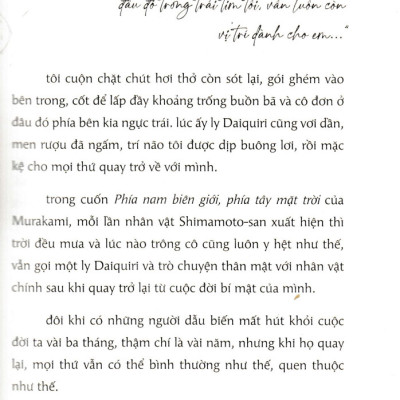 đâu đó trong trái tim tôi, vẫn luôn còn
vị trí dành cho em..."
tôi cuộn chặt chút hơi thở còn sót lại, gói ghém vào
bên trong, cốt để lấp đầy khoảng trống buồn bã và cô đơn ở
đâu đó phía bên kia ngực trái. lúc ấy ly Daiquiri cũng vơi dần,
men rượu đã ngấm, trí não tôi được dịp buông lơi, rồi mặc
kệ cho mọi thứ quay trở về với mình.
trong cuốn Phía nam biên giới, phía tây mặt trời của
Murakami, mỗi lần nhân vật Shimamoto-san xuất hiện thì
trời đều mưa và lúc nào trông cô cũng luôn y hệt như thế,
vẫn gọi một ly Daiquiri và trò chuyện thân mật với nhân vật
chính sau khi quay trở lại từ cuộc đời bí mật của mình.
đôi khi có những người dẫu biến mất hút khỏi cuộc
đời ta vài ba tháng, thậm chí là vài năm, nhưng khi họ quay
lại, mọi thứ vẫn có thể bình thường như thế, quen thuộc
như thế.